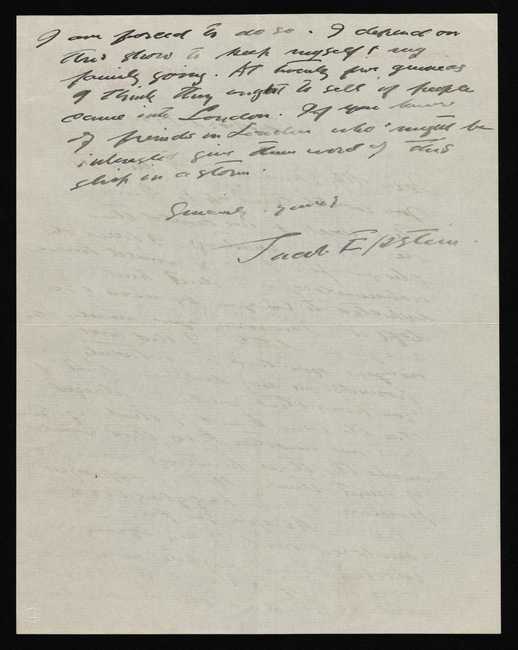 I am forced to do so. I depend on
this show to keep myself & my
family going. At twenty five guineas
I think they ought to sell if people
come into London. If you know
of friends in London who might be
interested give them word of this
ship in a storm.
Sincerely yours
Jacob Epstein.